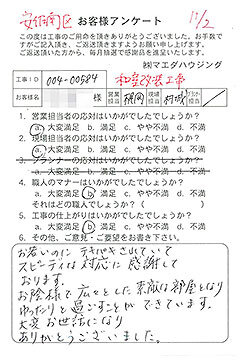 安佐南区 お客様アンケート 11/2
この度は工事のご用命を頂きありがとうございました。お手数で
すがご記入頂き、ご返送頂きますようお願い申し上げます。
ご返送頂いた方から、毎月抽選で感謝品を進呈いたします。
㈱マエダハウジング
工事ID 004-00584 和室改装工事
お客様名 様 営業担当 現場担当 村城 プランナー担当
1. 営業担当者の応対はいかがでしたでしょうか?
a. 大変満足 b. 満足 c. やや不満 d. 不満
2. 現場担当者の応対はいかがでしたでしょうか?
a. 大変満足 b. 満足 c. やや不満 d. 不満
3. プランナーの応対はいかがでしたでしょうか?
a. 大変満足 b. 満足 c. やや不満 d. 不満
4. 職人のマナーはいかがでしたでしょうか?
a. 大変満足 b. 満足 c. やや不満 d. 不満
それはどの職人でしょうか? ( )
5. 工事の仕上がりはいかがでしたでしょうか?
a. 大変満足 b. 満足 c. やや不満 d. 不満
6. その他、ご意見・ご要望をお書き下さい。
お若いのに テキパキされていて
スピーディな対応に感謝して
おります。
お陰様で広々とした素敵な部屋となり
ゆったりと過ごすことができています。
大変お世話になり
ありがとうございました。